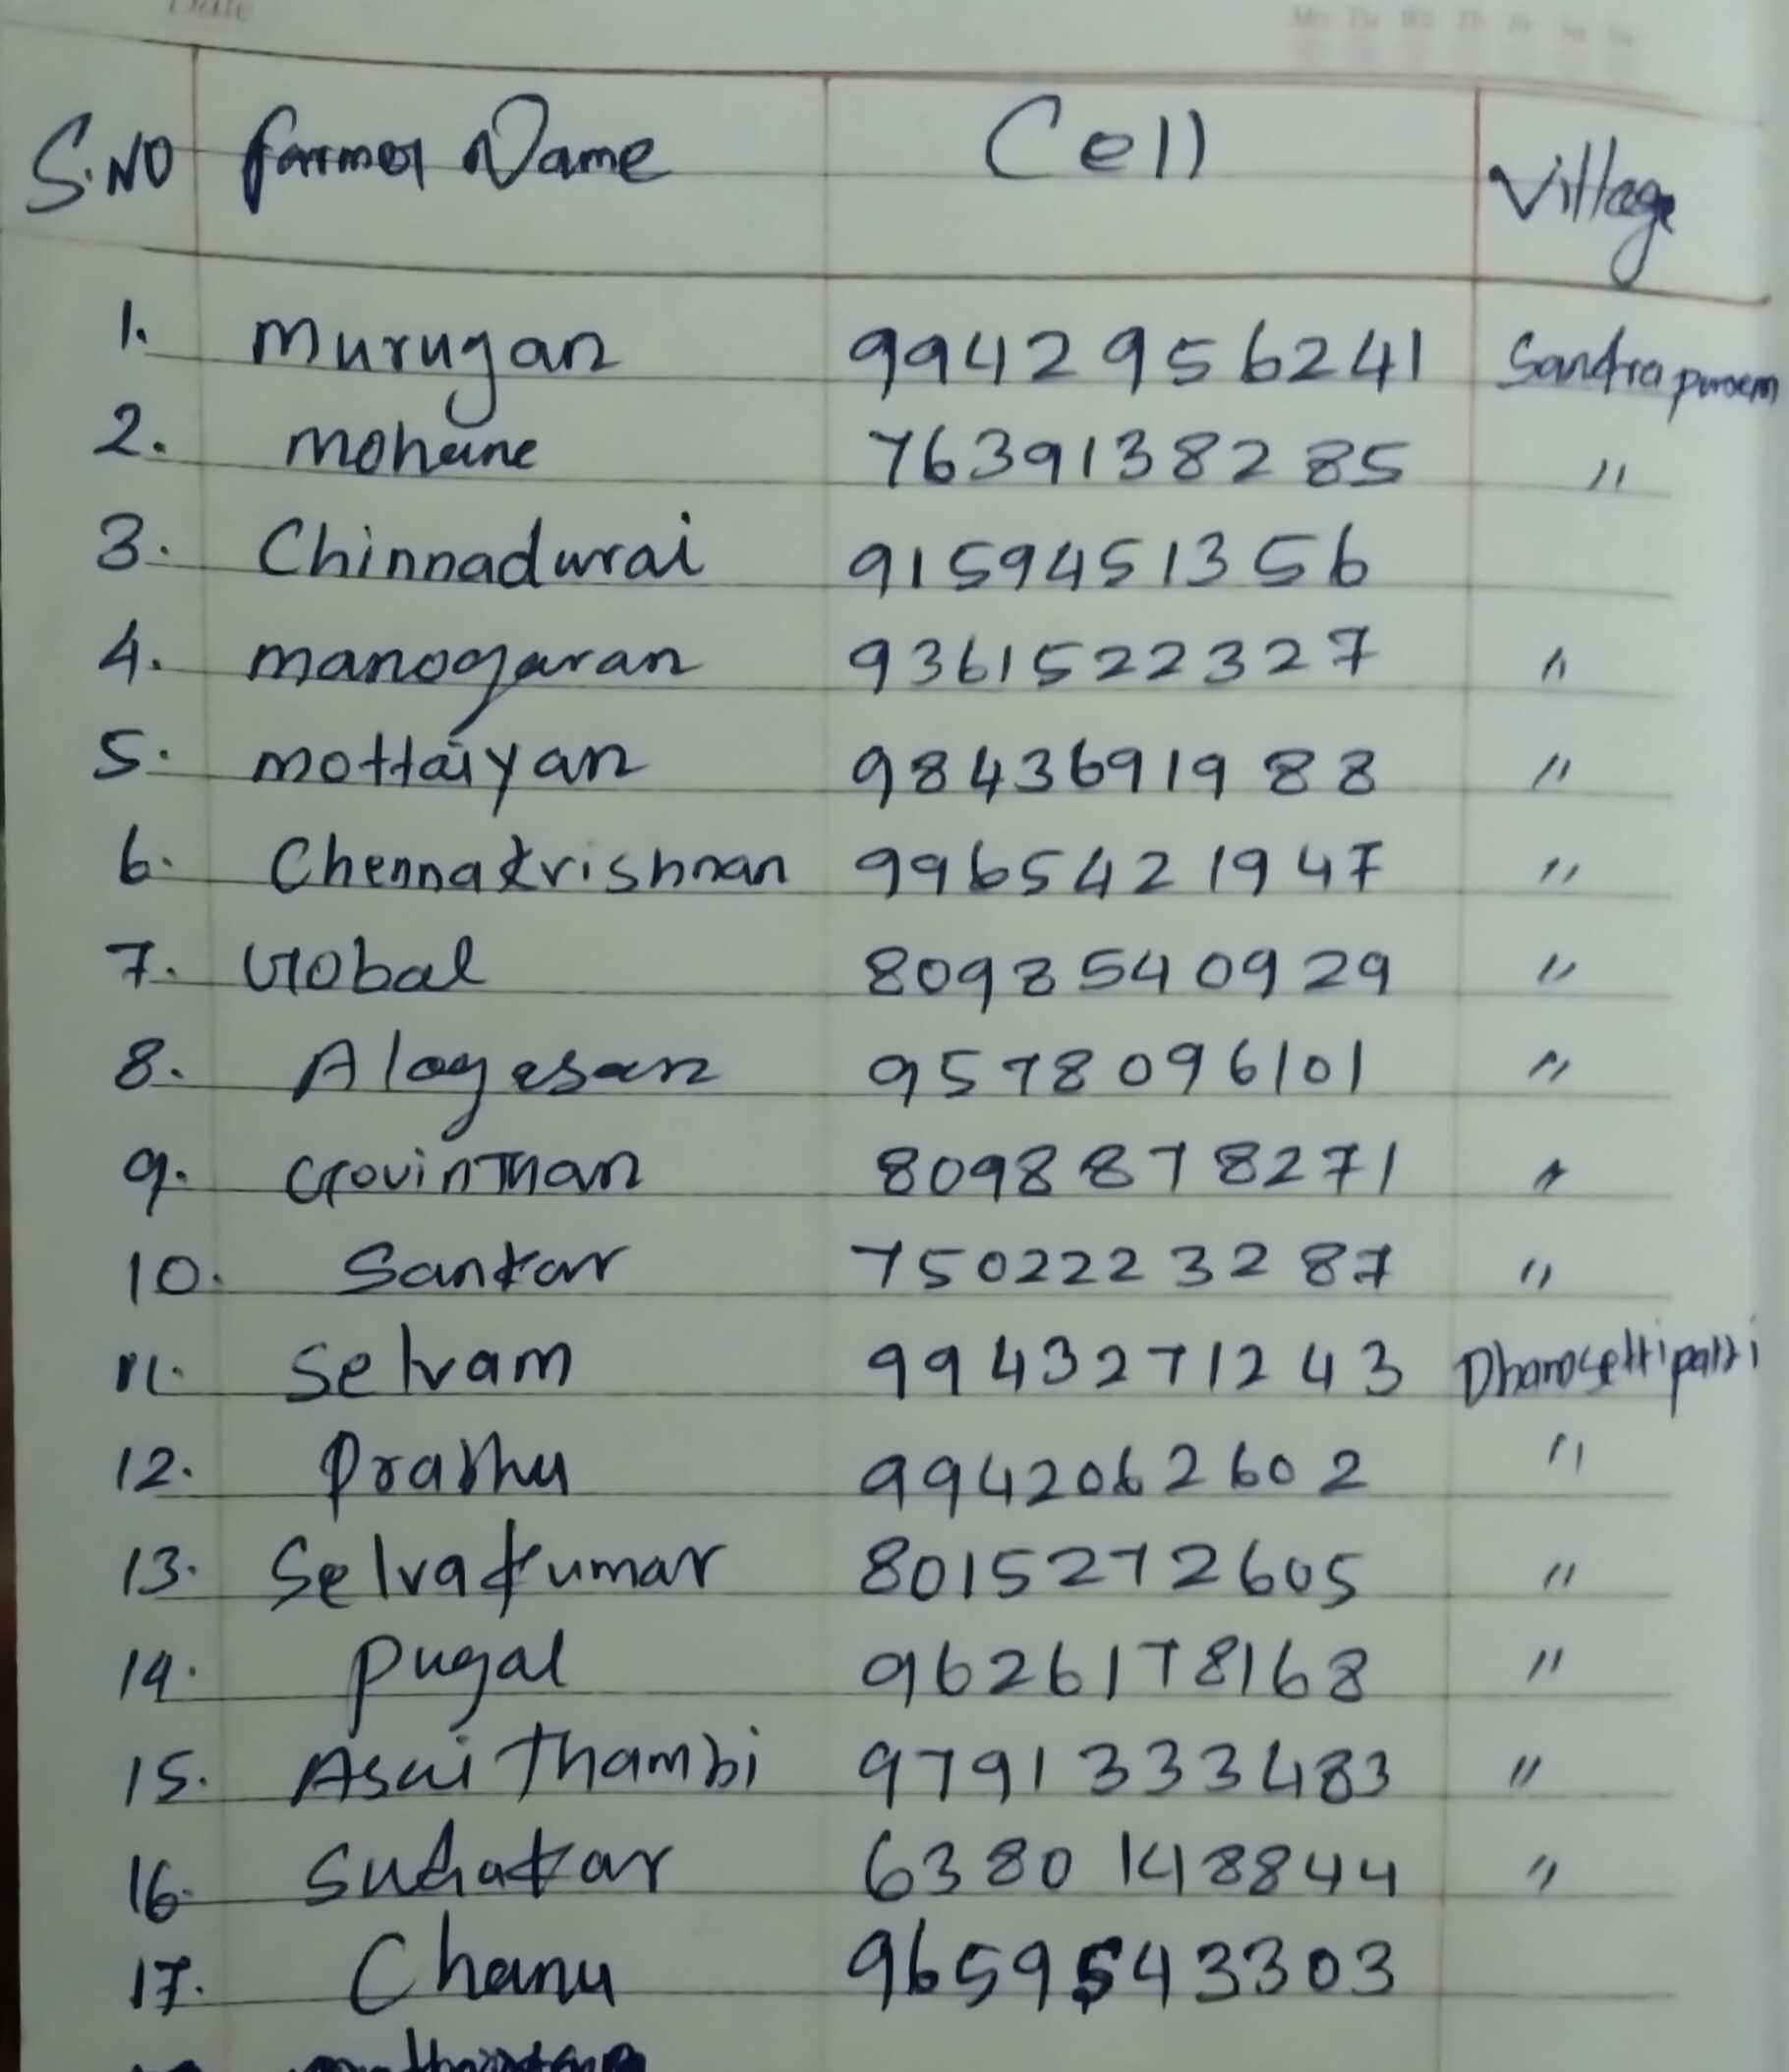 Date Mo Tu We Th Fr Sa Su
S.NO Farmer Name Cell Village
1. Murugan 9942956241 Sandrapuram
2. Mohane 7639138285 "
3. Chinnadurai 9159451356
4. Manogaran 9361522327 "
5. Mottaiyan 9843691988 "
6. Chennakrishnan 9965421947 "
7. Gobal 8098540929 "
8. Alagesan 9578096101 "
9. Govinthan 8098878271 "
10. Sankar 7502223287 "
11. Selvam 9943271243 Dharosettipatti
12. Prabhu 9942062602 "
13. Selvakumar 8015272605 "
14. Pugal 9626178168 "
15. Asai Thambi 9791333483 "
16. Sudhakar 6380148844 "
17. Chanu 9659543303